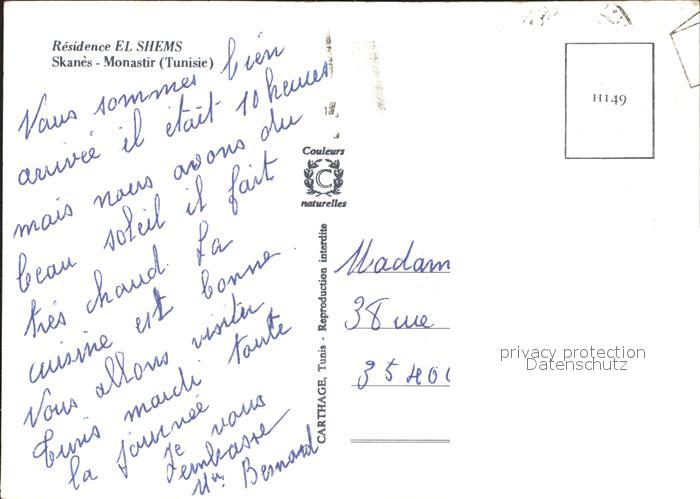 Résidence EL SHEMS
Skanès - Monastir (Tunisie)
Vous sommes bien
arrivée il était 10 heures
mais nous avons du
beau soleil il fait
très chaud. La
cuisine est bonne
Vous allons visiter
Tunis mardi toute
la journée
Je vous
embrasse
Mme Bernard
Couleurs
C
naturelles
CARTHAGE, Tunis - Reproduction interdite
H149
Madam
38 rue
35400
privacy protection
Datenschutz